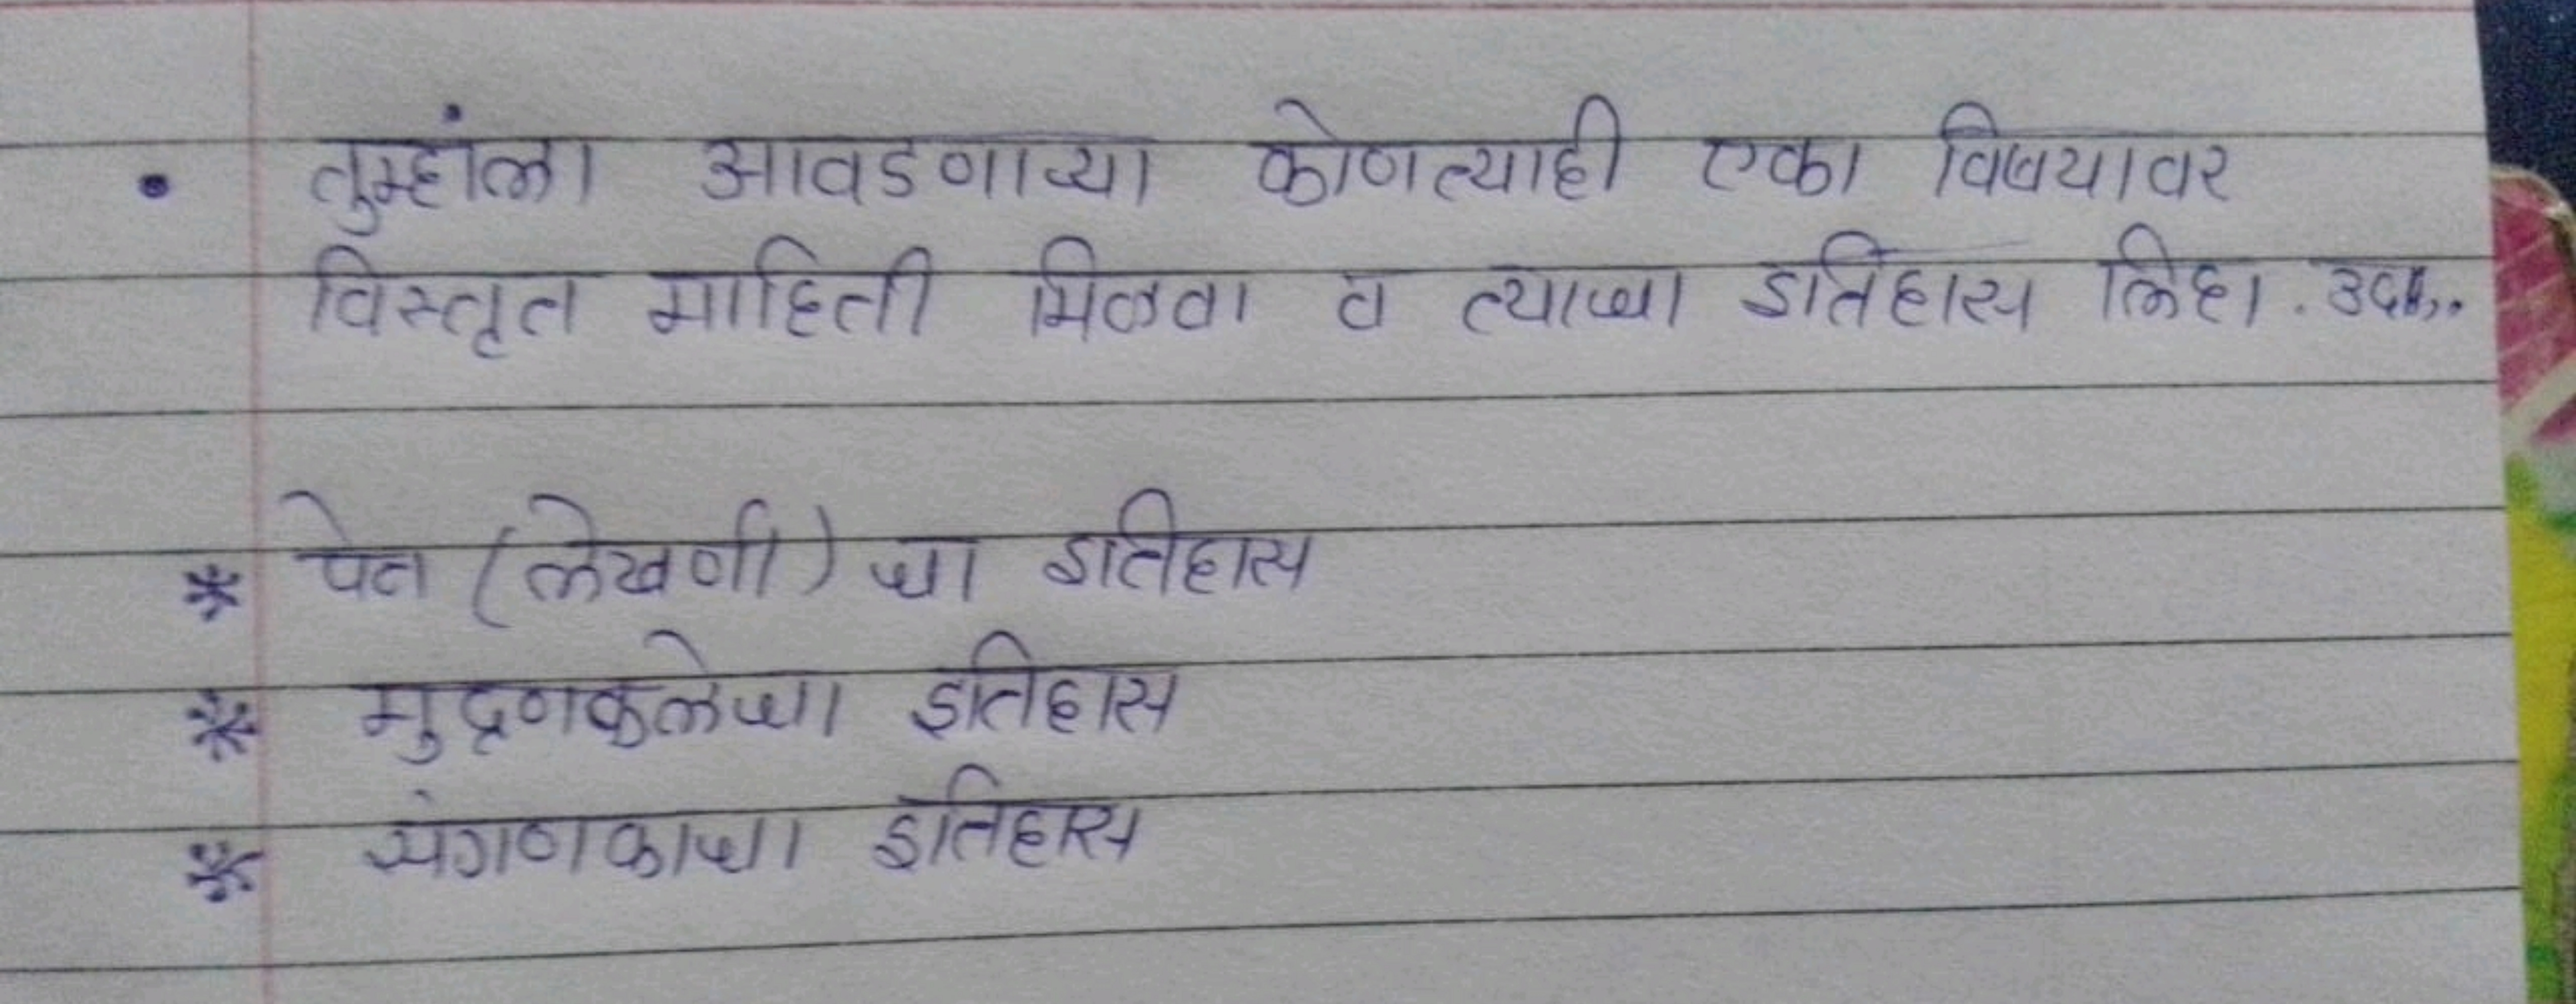 • तुम्हांला आवडणाऱ्या कोणत्याही एका विषयावर
विस्तृत माहिती मिळवा व त्याचा इतिहास लिहा. उदा.,
* पेन (लेखणी) चा इतिहास
* मुद्रणकलेचा इतिहास
* संगणकाचा इतिहास